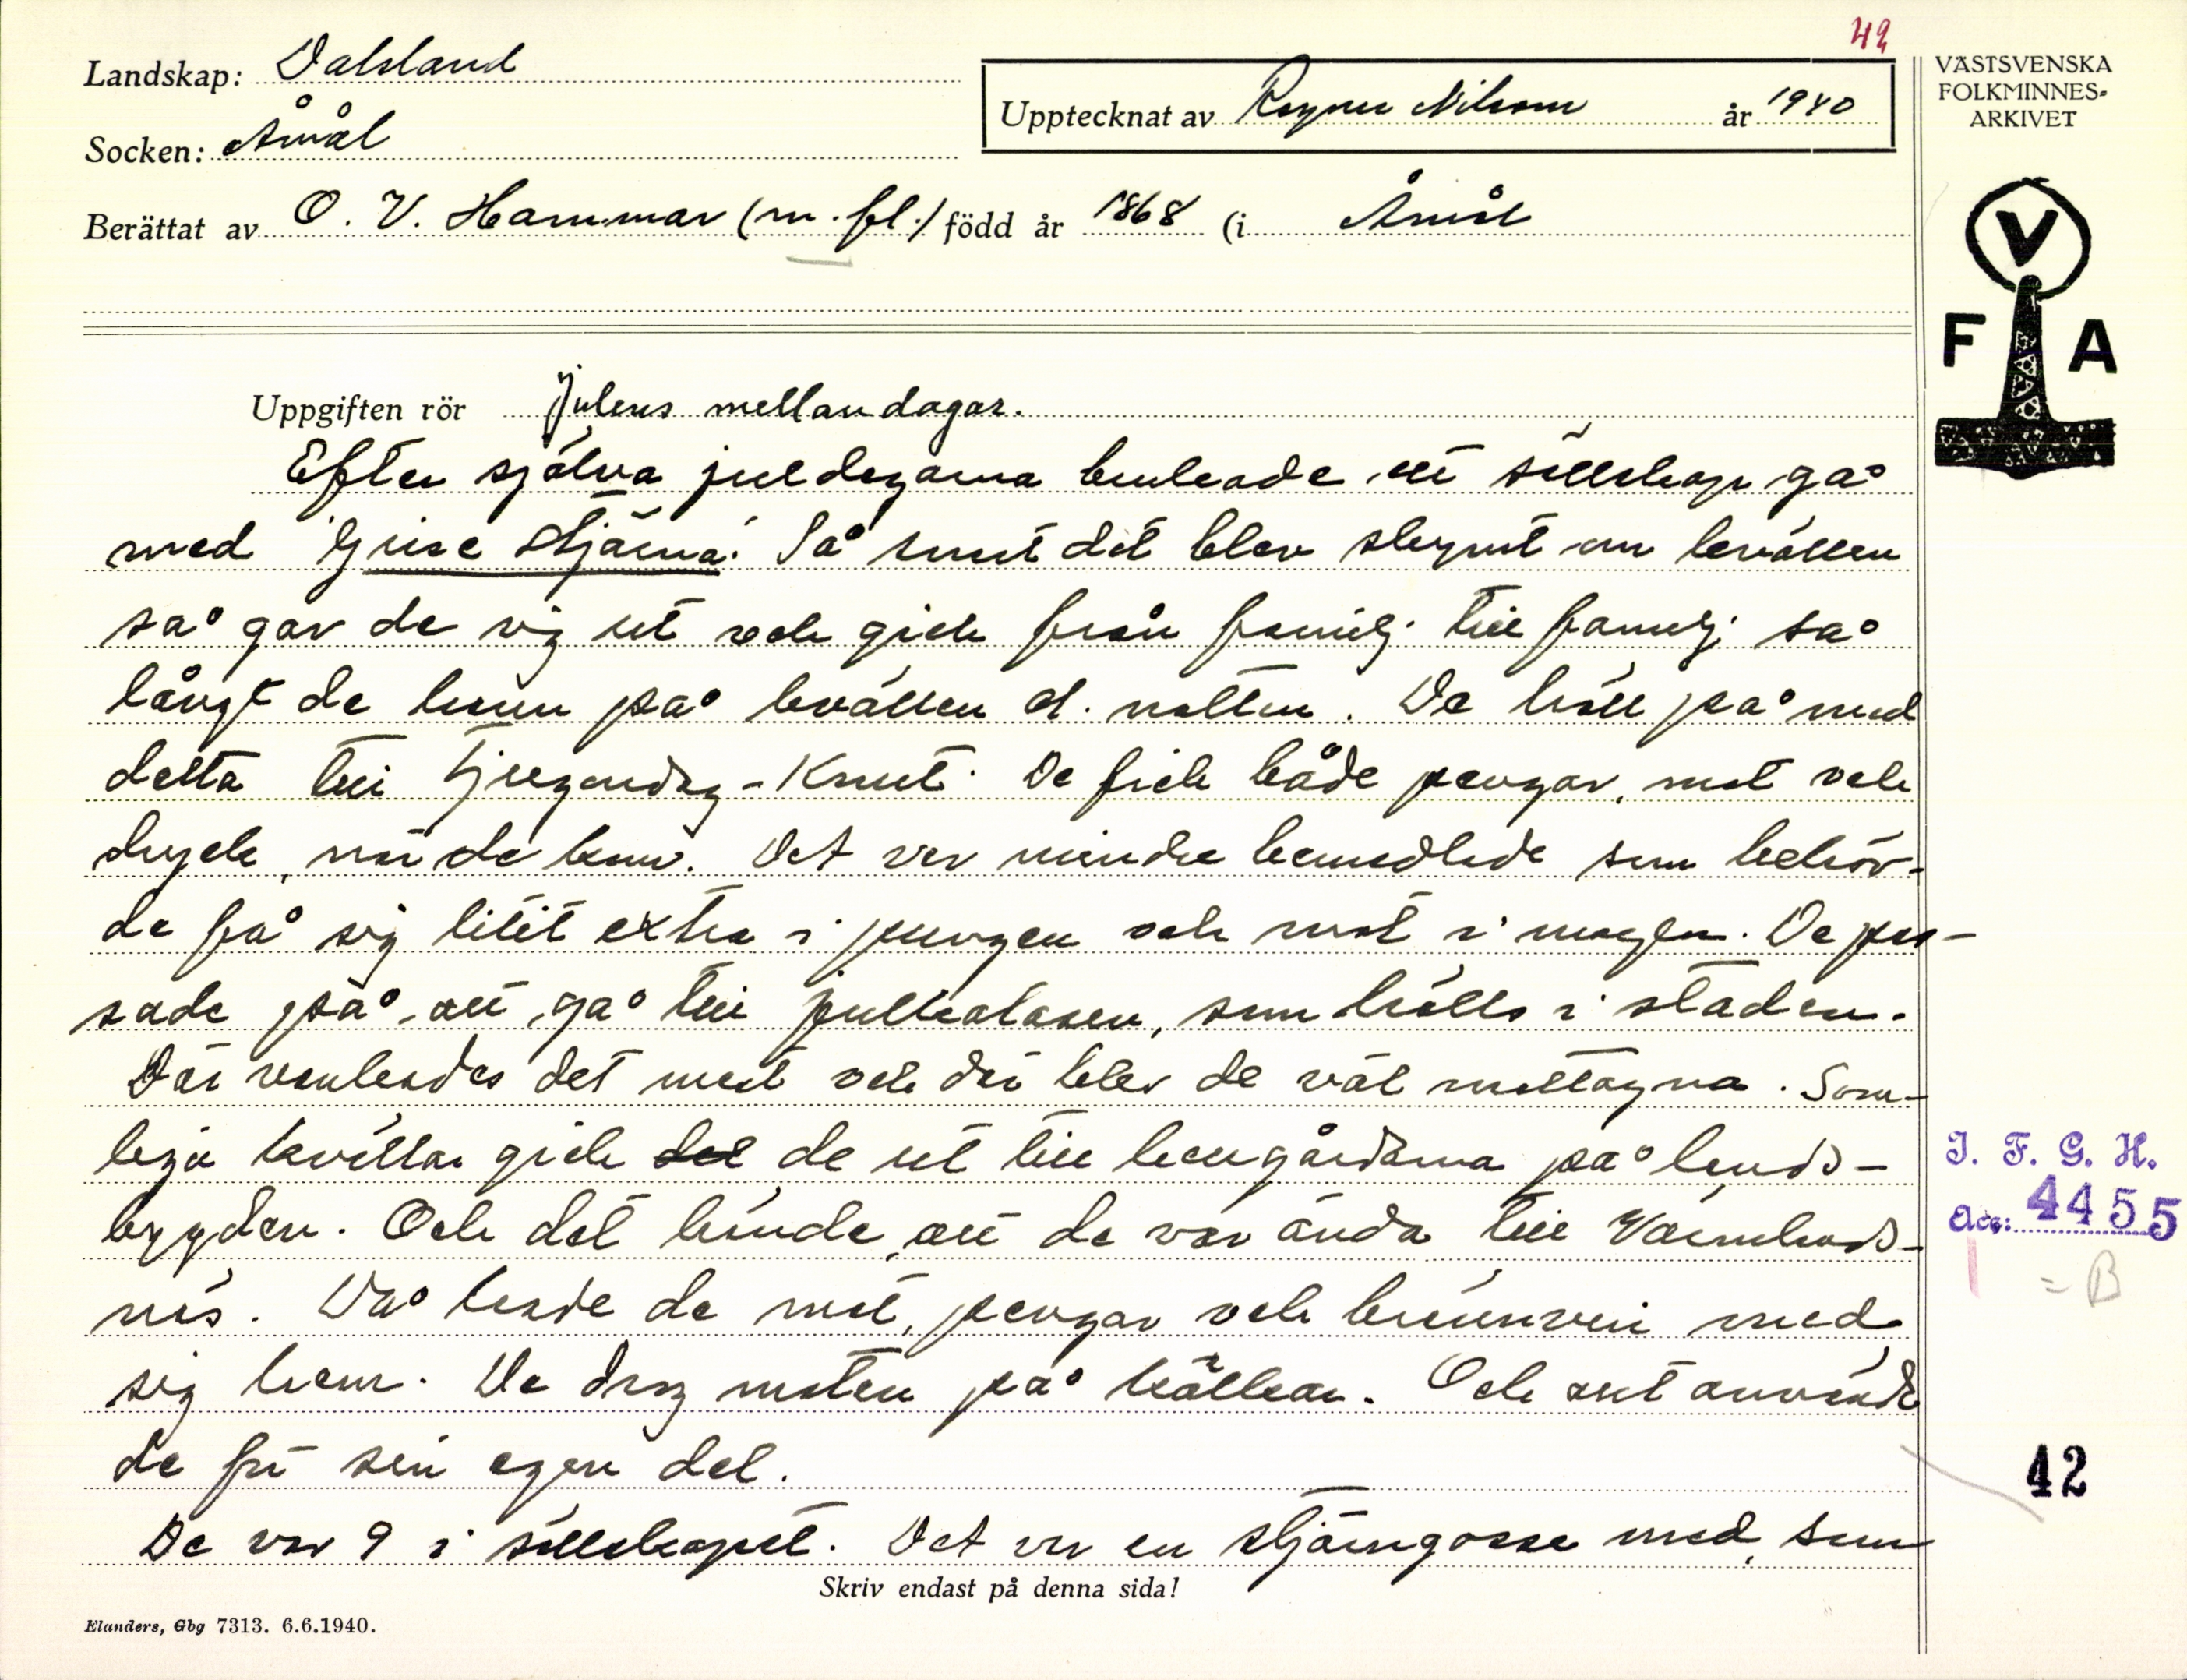 42
Landskap: Dalsland
Upptecknat av Ragnar Nilsson år 1940
Socken: Åmål
Berättat av O. V. Hammar (m. fl.) född år 1868 (i Åmål
VÄSTSVENSKA
FOLKMINNES-
ARKIVET
V
F A
Uppgiften rör Julens mellandagar.
Efter själva juldagarna brukade ett sällskap gå
med stjärna. Så snart det blev skymt om kvällen
så gav de sig ut och gick från familj till familj så
långt de hann på kvällen o. natten. De höll på med
detta till tjugondag-Knut. De fick både pengar, mat och
dryck, när de kom. Det var mindre bemedlade som behöv-
de få sig litet extra i pungen och mat i magen. De pas-
sade på att gå till julkalasen, som hölls i staden.
Där vankades det mest och där blev de väl mottagna. Som-
liga kvällar gick det de ut till herrgårdarna på lands-
bygden. Och det hände, att de var ända till Värmlands-
näs. Då hade de mat, pengar och brännvin med
sig hem. De drog maten på kälkar. Och allt använde
de för sin egen del.
De var 9 i sällskapet. Det var en stjärngosse med, som
I. F. G. H.
Acc: 4455
= B
42
Skriv endast på denna sida!
Elanders, Gbg 7313. 6.6.1940.